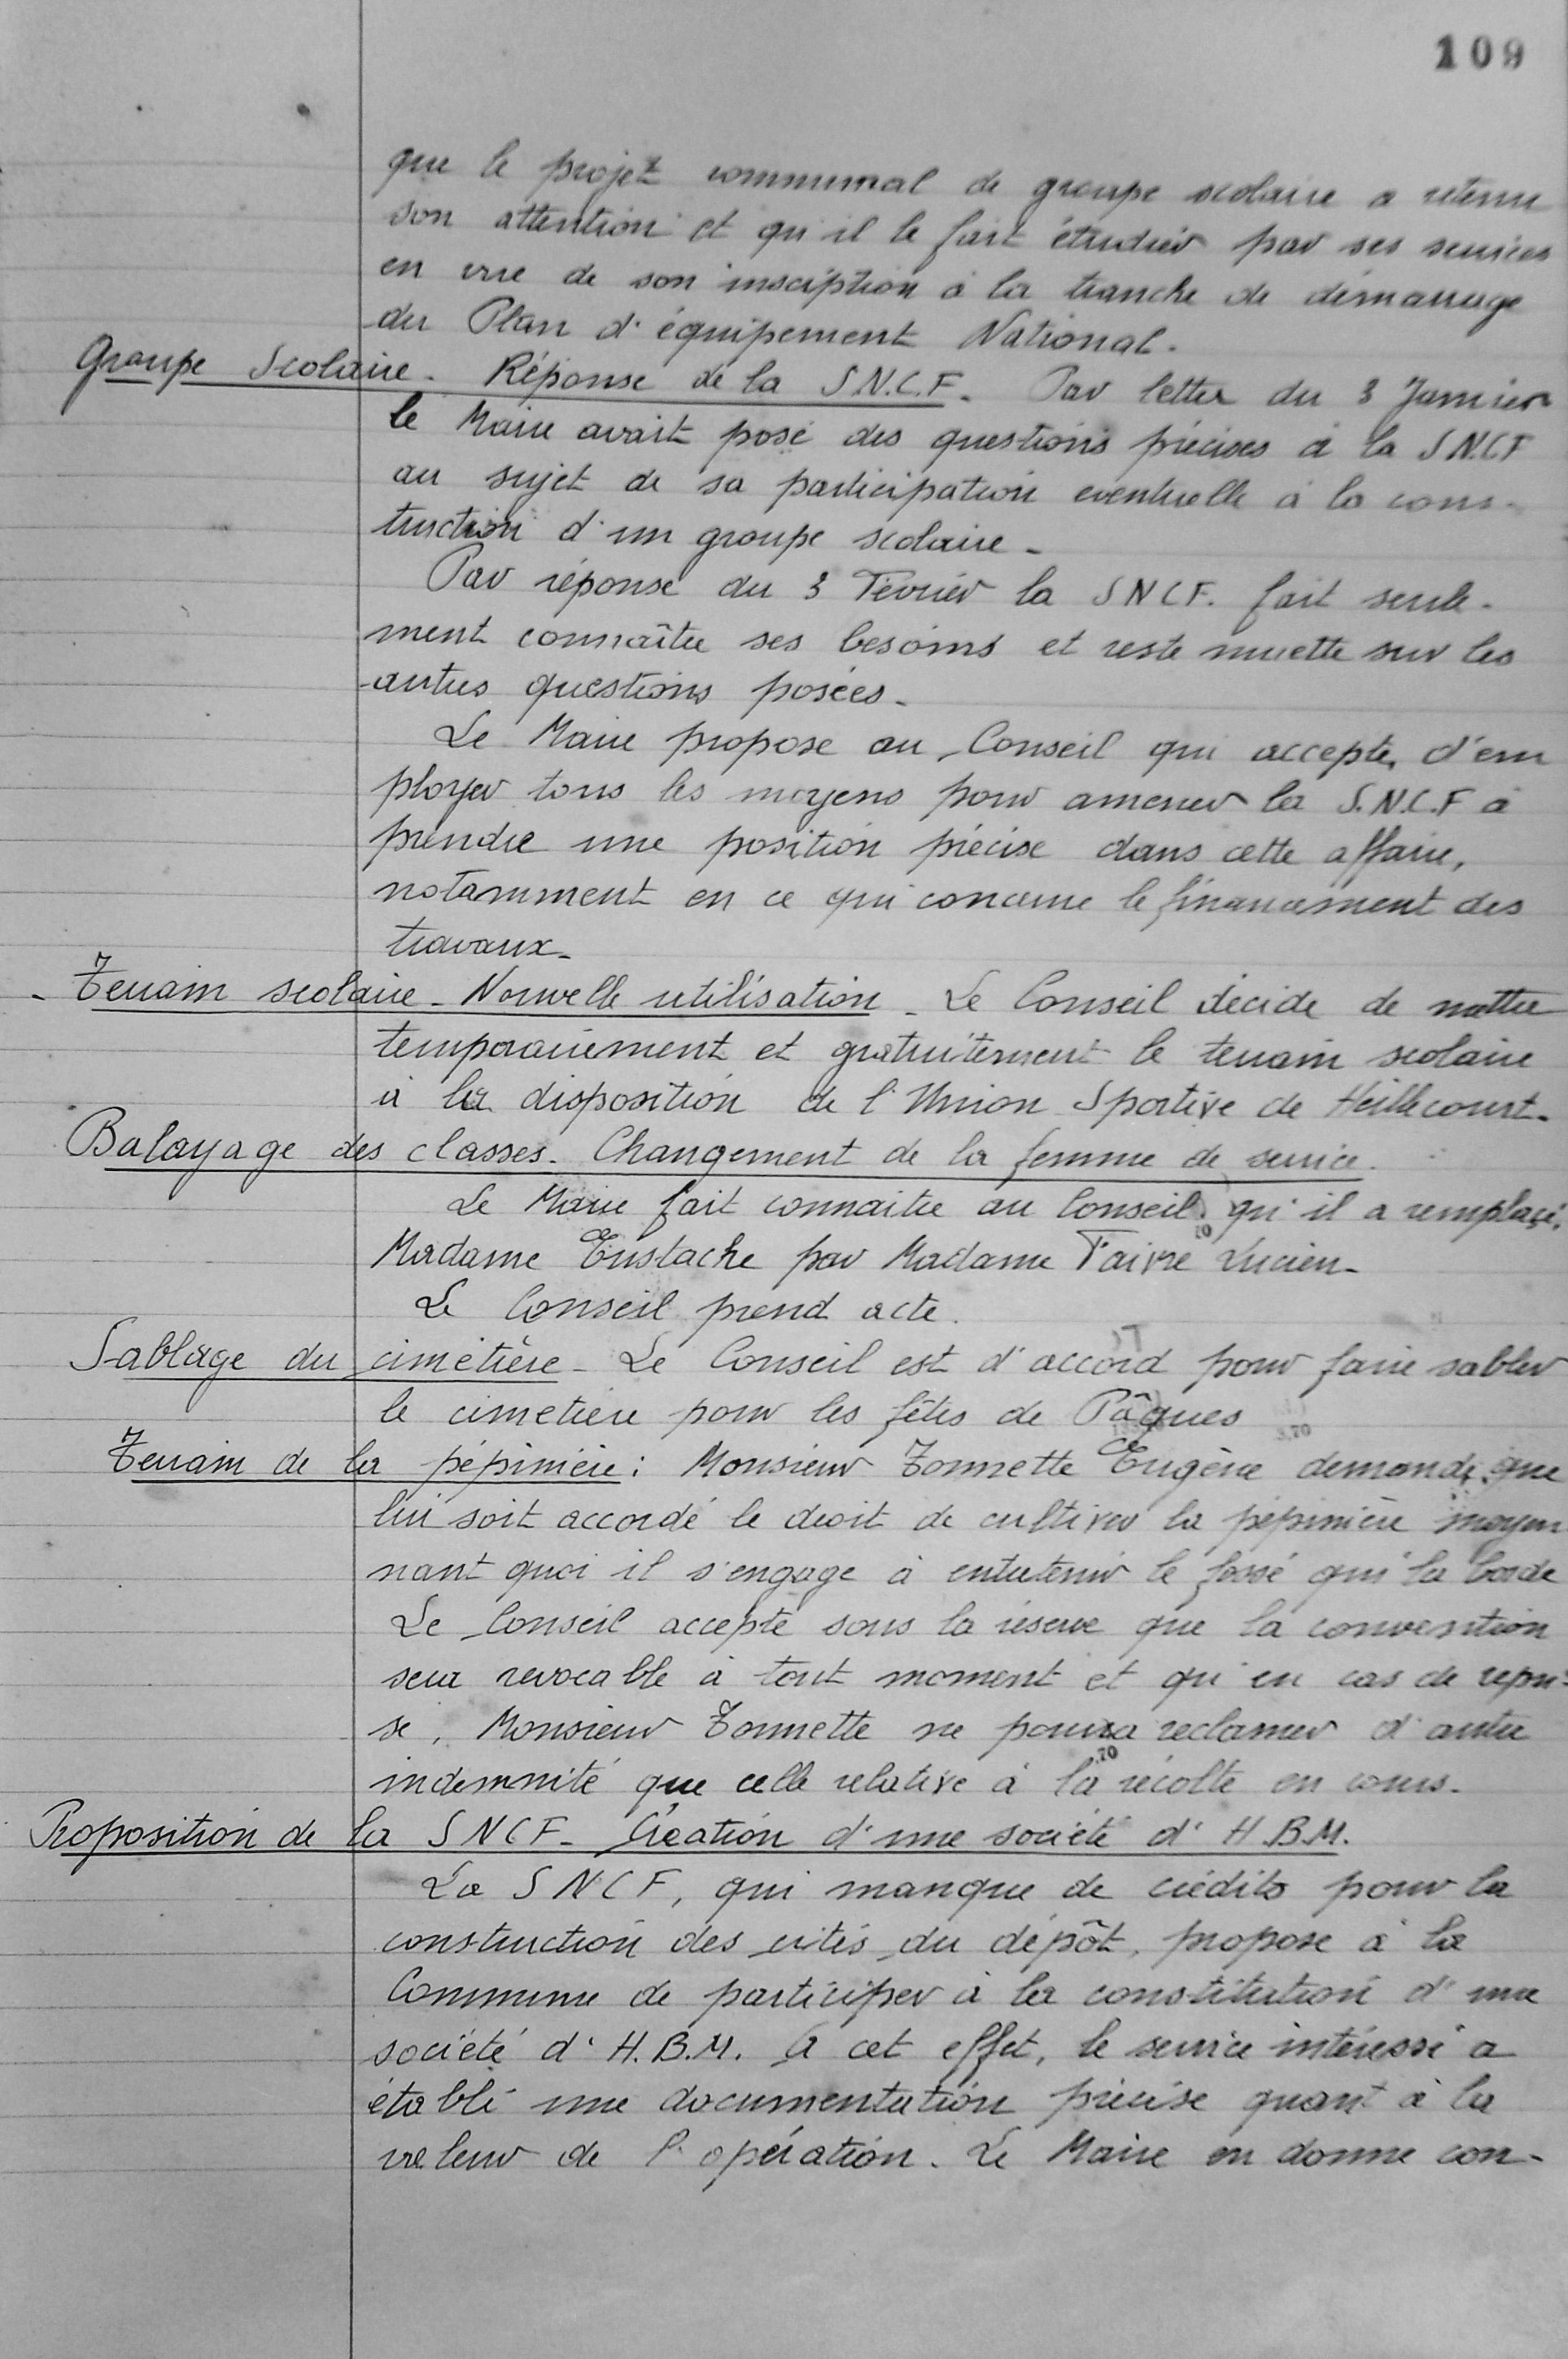 109
que le projet communal de groupe scolaire a retenu
son attention et qu'il le fait étudier par ses services
en vue de son insciption à la tranche de démarrage
du Plan d'équipement National.
Groupe Scolaire. Réponse de la S.N.C.F. Par lettre du 3 Janvier
le Maire avait posé des questions précises à la S.N.C.F
au sujet de sa participation eventuelle à la cons-
truction d'un groupe scolaire.
Par réponse du 3 Février la SNCF. fait seule-
ment connaître ses besoins et reste muette sur les
autres questions posées.
Le Maire propose au Conseil qui accepte, d'em
ployer tous les moyens pour amener la S.N.C.F à
prendre une position précise dans cette affaire,
notamment en ce qui concerne le financement des
travaux.
- Terrain scolaire - Nouvelle utilisation - Le Conseil décide de mettre
temporairement et gratuitement le terrain scolaire
à la disposition de l'Union Sportive de Heillecourt.
Balayage des classes. Changement de la femme de service.
Le Maire fait connaitre au Conseil qu'il a remplacé,
Madame Eustache par Madame Faivre Lucien.
Le Conseil prend acte.
Sablage du cimetière - Le Conseil est d'accord pour faire sabler
le cimetière pour les fêtes de Pâques
Terrain de la pépinière : Monsieur Tonnette Eugène demande que
lui soit accordé le droit de cultiver la pépinière moyen
nant quoi il s'engage à entretenir le fossé qui la borde
Le Conseil accepte sous la réserve que la convention
sera revocable à tout moment et qu'en cas de repri-
se, Monsieur Tonnette ne pourra reclamer d'autre
indemnité que celle relative à la récolte en cours.
Proposition de la SNCF - Création d'une société d'H.B.M.
La SNCF, qui manque de crédits pour la
construction des cités du dépôt, propose à la
Commune de participer à la constitution d'une
société d'H.B.M. A cet effet, le service intéressé a
établi une documentation précise quant à la
valeur de l'opération. Le Maire en donne con-